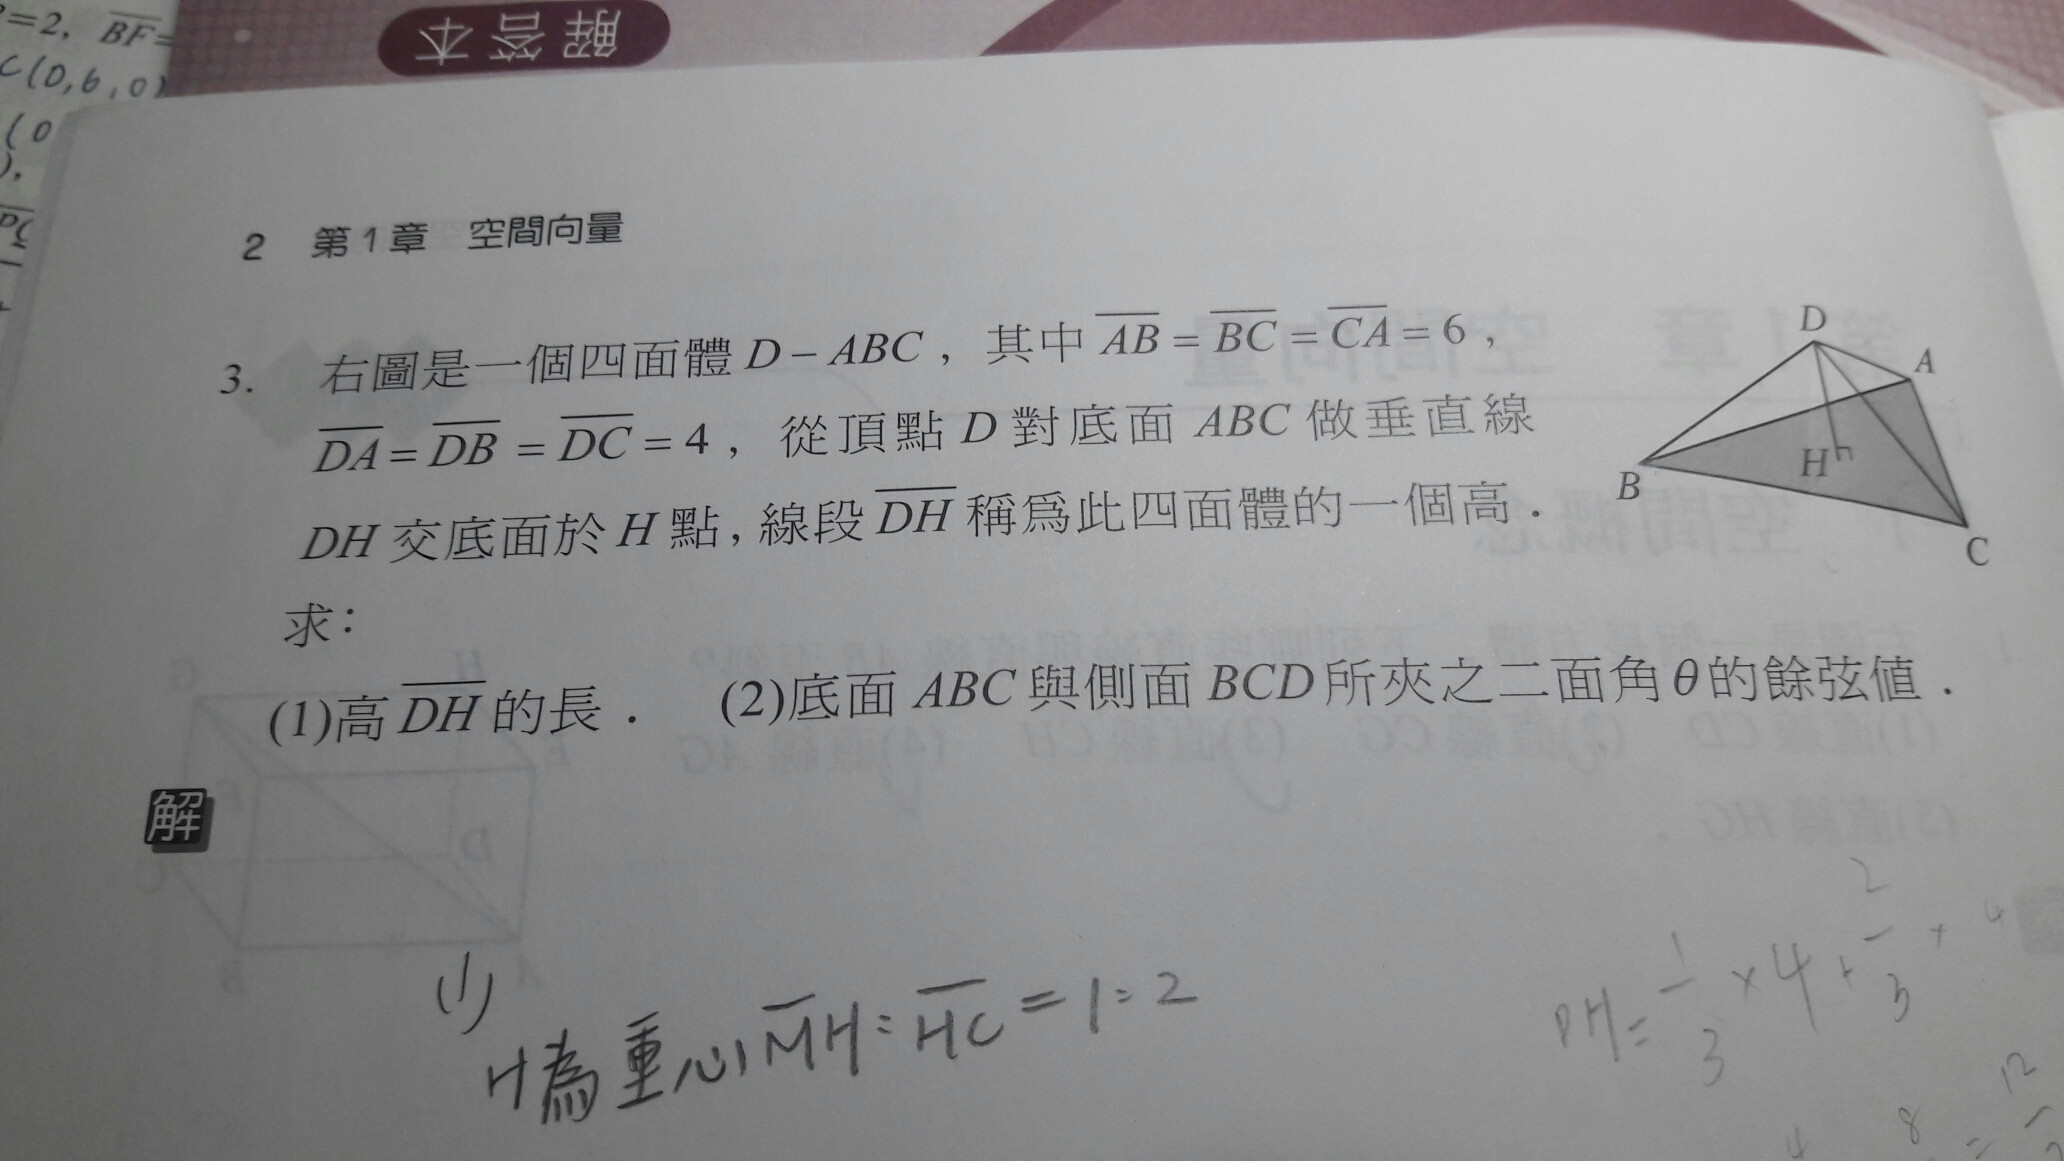 =2, BF=
C(0,6,0)
(0
解答本
2 第1章 空間向量
3. 右圖是一個四面體 D－ABC，其中 AB = BC = CA = 6，
DA = DB = DC = 4，從頂點 D 對底面 ABC 做垂直線
DH 交底面於 H 點，線段 DH 稱爲此四面體的一個高．
求：
(1)高 DH 的長． (2)底面 ABC 與側面 BCD 所夾之二面角 θ 的餘弦值．
D
A
B
H
C
解
(1)
H為重心 MH:HC=1:2